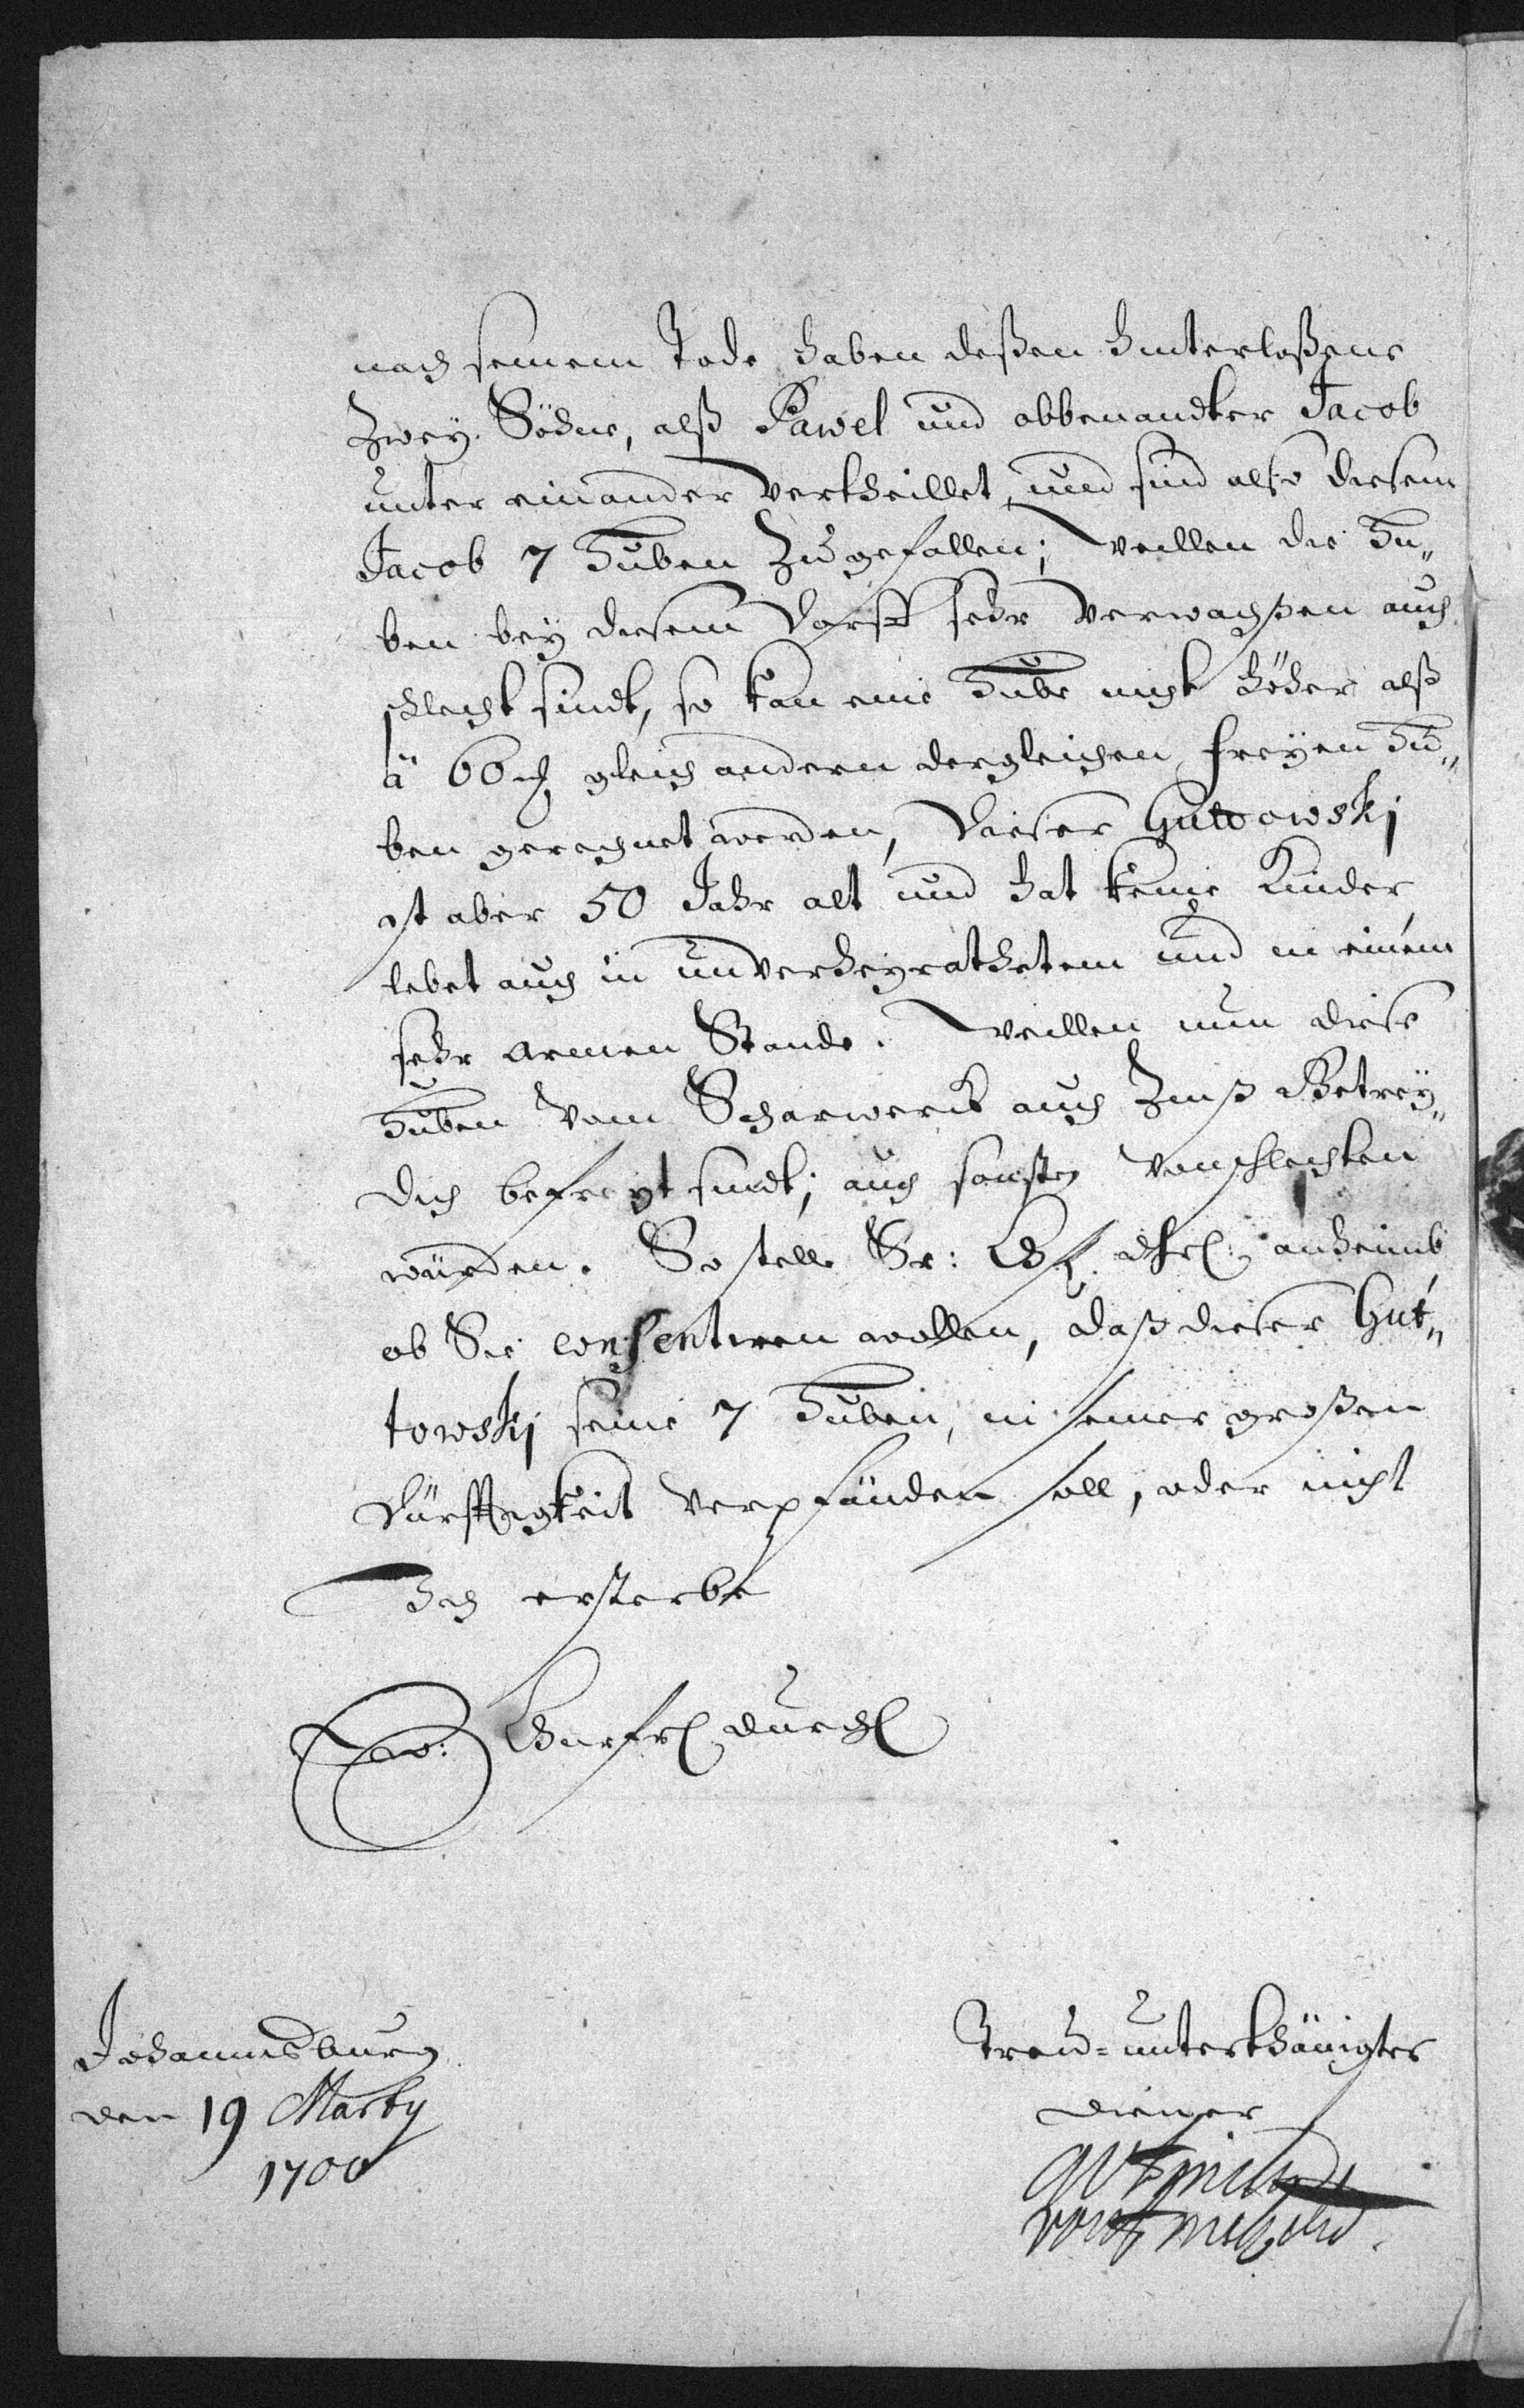 nach seinem Tode haben deßen hinterlaßene
Zwey Söhne, alß Pawel und obbenandter Jacob
unter einander vertheillet, und sind also diesem
Jacob 7 Huben Zugefallen; weillen die Hu„
ben bey diesem Dorff sehr verwachßen auch
schlecht sindt, so kan eine Hube nicht höher alß
à 60 gleich andern dergleichen freyen Hu„
ben gerechnet werden, Dieser Guttowskj
ist aber 50 Jahr alt und hat keine Kinder,
lebet auch in unverheyrathetem und in einem
sehr armen Stande. Weillen nun diese
Huben vom Scharwerck auch Zinß Getrey„
dich befreyt sindt; auch sonsten von schlechten
würden. So stelle Er: anheimb
ob Sie consentiren wollen, daß dieser Gut„
towskj seine 7 Huben, in seiner großen
Dürfftigkeit verpfänden soll, oder nicht
Ich ersterbe
Ew: Churfrl Durchl
Johannsburg
den 19 Marty
1700
Treu=unterthänigster
Diener